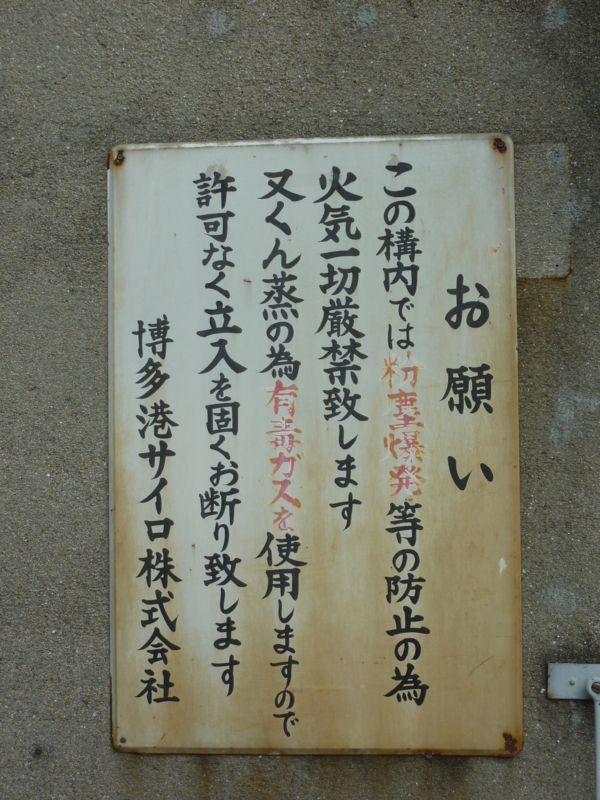 お願い
この構内では粉塵爆発等の防止の為
火気一切厳禁致します
又くん蒸の為有毒ガスを使用しますので
許可なく立入を固くお断り致します
博多港サイロ株式会社